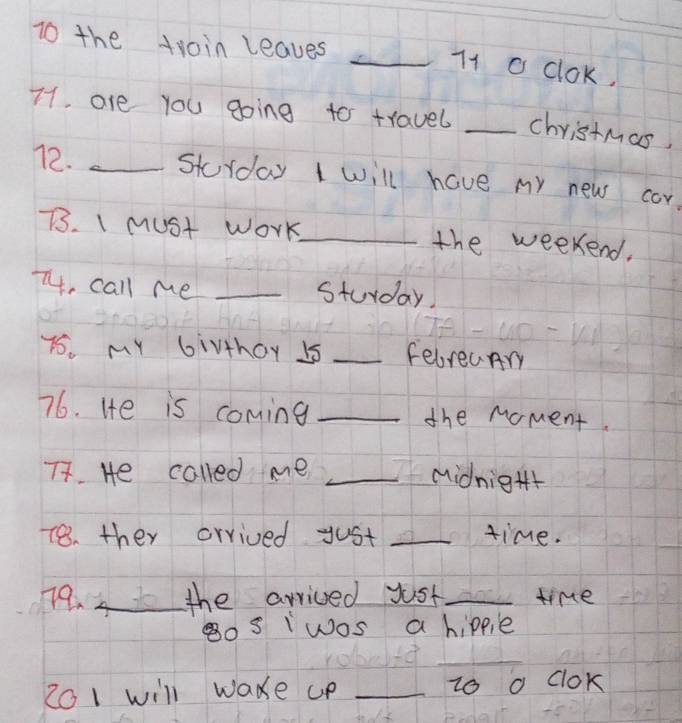 10 the train leaves ____ 11 o clok.
11. are you going to travel ___ christmas.
12. ____ Sturday I will have my new car.
13. I must work ______ the weekend.
14. call me ____ Sturday.
15. my birthay is ___ Febreuary
16. He is coming ____ the moment.
17. He called me ____ midnight
18. they arrived just ____ time.
19. ____ the arrived just ____ time
80s i was a hippie
20 I will wake up ____ 10 o clok